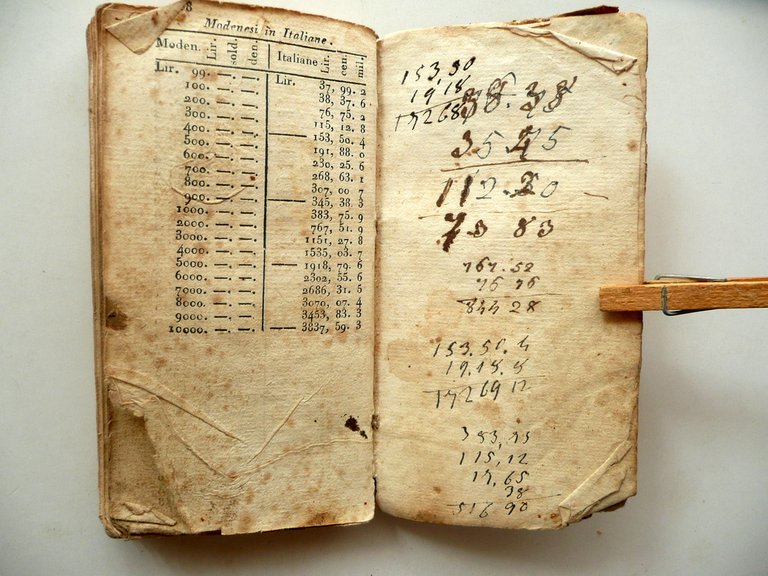 8
Modenesi in Italiane.
Moden. Lir. sold. den. Italiane Lir. cen. mil.
Lir. 99. —. —. —. Lir. 37, 99. 2
100. —. —. —. 38, 37. 6
200. —. —. —. 76, 75. 2
300. —. —. —. 115, 12. 8
400. —. —. —. — 153, 50. 4
500. —. —. —. 191, 88. 0
600. —. —. —. 230, 25. 6
700. —. —. —. 268, 63. 1
800. —. —. —. 307, 00 7
900. —. —. —. — 345, 38. 3
1000. —. —. —. 383, 75. 9
2000. —. —. —. 767, 51. 9
3000. —. —. —. 1151, 27. 8
4000. —. —. —. 1535, 03. 7
5000. —. —. —. — 1918, 79. 6
6000. —. —. —. 2302, 55. 6
7000. —. —. —. 2686, 31. 5
8000. —. —. —. 3070, 07. 4
9000. —. —. —. 3453, 83. 3
10000. —. —. —. — 3837, 59. 3
153,50
19,18
17268
38.38
35 45
112.20
73 83
767.52
76 76
844 28
153.50.4
19.18.8
17269 12
383,75
115,12
17,65
38
516 90